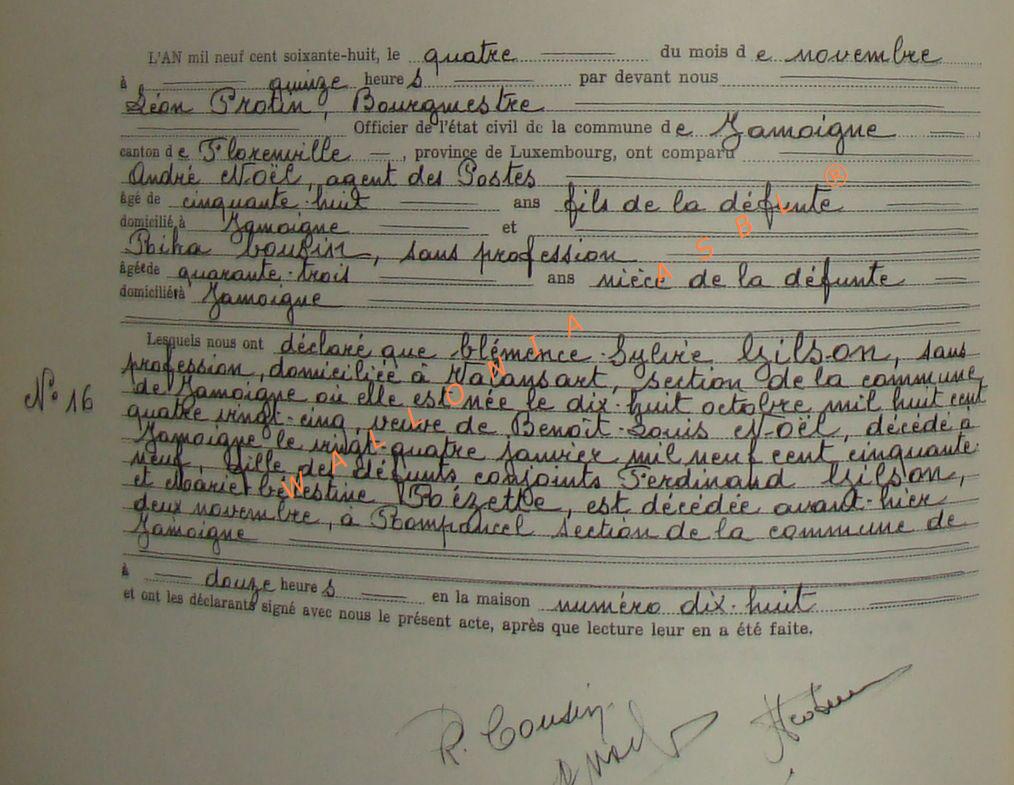 L'AN mil neuf cent soixante-huit, le quatre du mois d e novembre
à quinze heure s par devant nous
Léon Protin, Bourgmestre
Officier de l'état civil de la commune de Jamoigne
canton de Florenville, province de Luxembourg, ont comparu
André Noël, agent des Postes
âgé de cinquante-huit ans fils de la défunte
domicilié à Jamoigne et
Cousin, sans profession
âgée de quarante-trois ans nièce de la défunte
domiciliée à Jamoigne
Lesquels nous ont déclaré que Clémence-Sylvie Gilson, sans
profession, domiciliée à Valansart, section de la commune
de Jamoigne où elle est née le dix-huit octobre mil huit cent
N° 16 quatre vingt-cinq, veuve de Benoît-Louis Noël, décédé à
Jamoigne le vingt-quatre janvier mil neuf cent cinquante-
neuf, fille des défunts conjoints Ferdinand Gilson,
et Marie-Célestine Rézette, est décédée avant-hier
deux novembre, à Romponcel section de la commune de
Jamoigne
à douze heure s en la maison numéro dix-huit
et ont les déclarants signé avec nous le présent acte, après que lecture leur en a été faite.
R. Cousin
WALLONIA ASBL ®